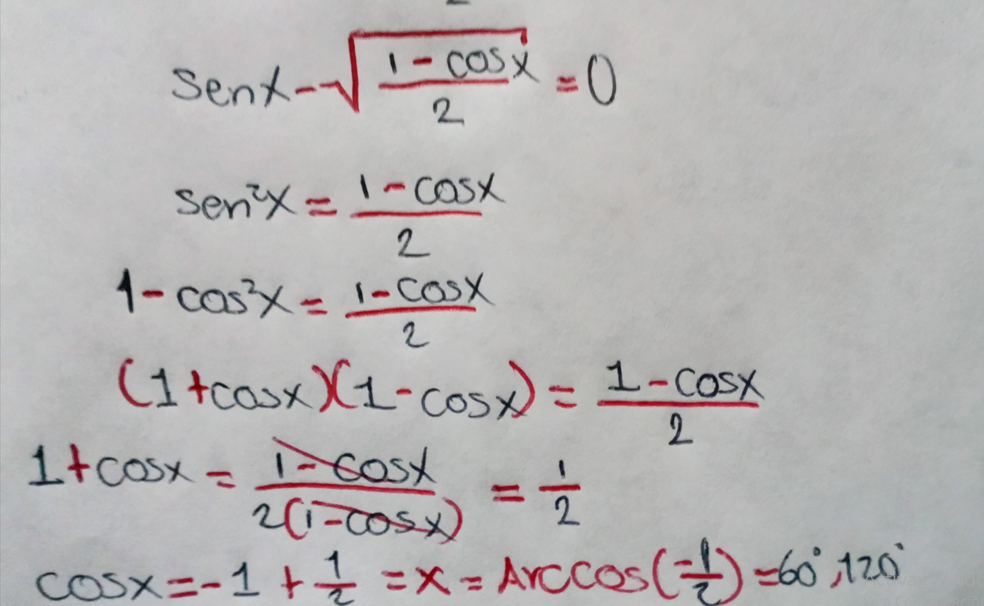 senx - √((1 - cosx)/2) = 0
sen²x = (1 - cosx)/2
1 - cos²x = (1 - cosx)/2
(1 + cosx)(1 - cosx) = (1 - cosx)/2
1 + cosx = (1 - cosx)/(2(1 - cosx)) = 1/2
cosx = -1 + 1/2 = x = Arccos(-1/2) = 60°, 120°